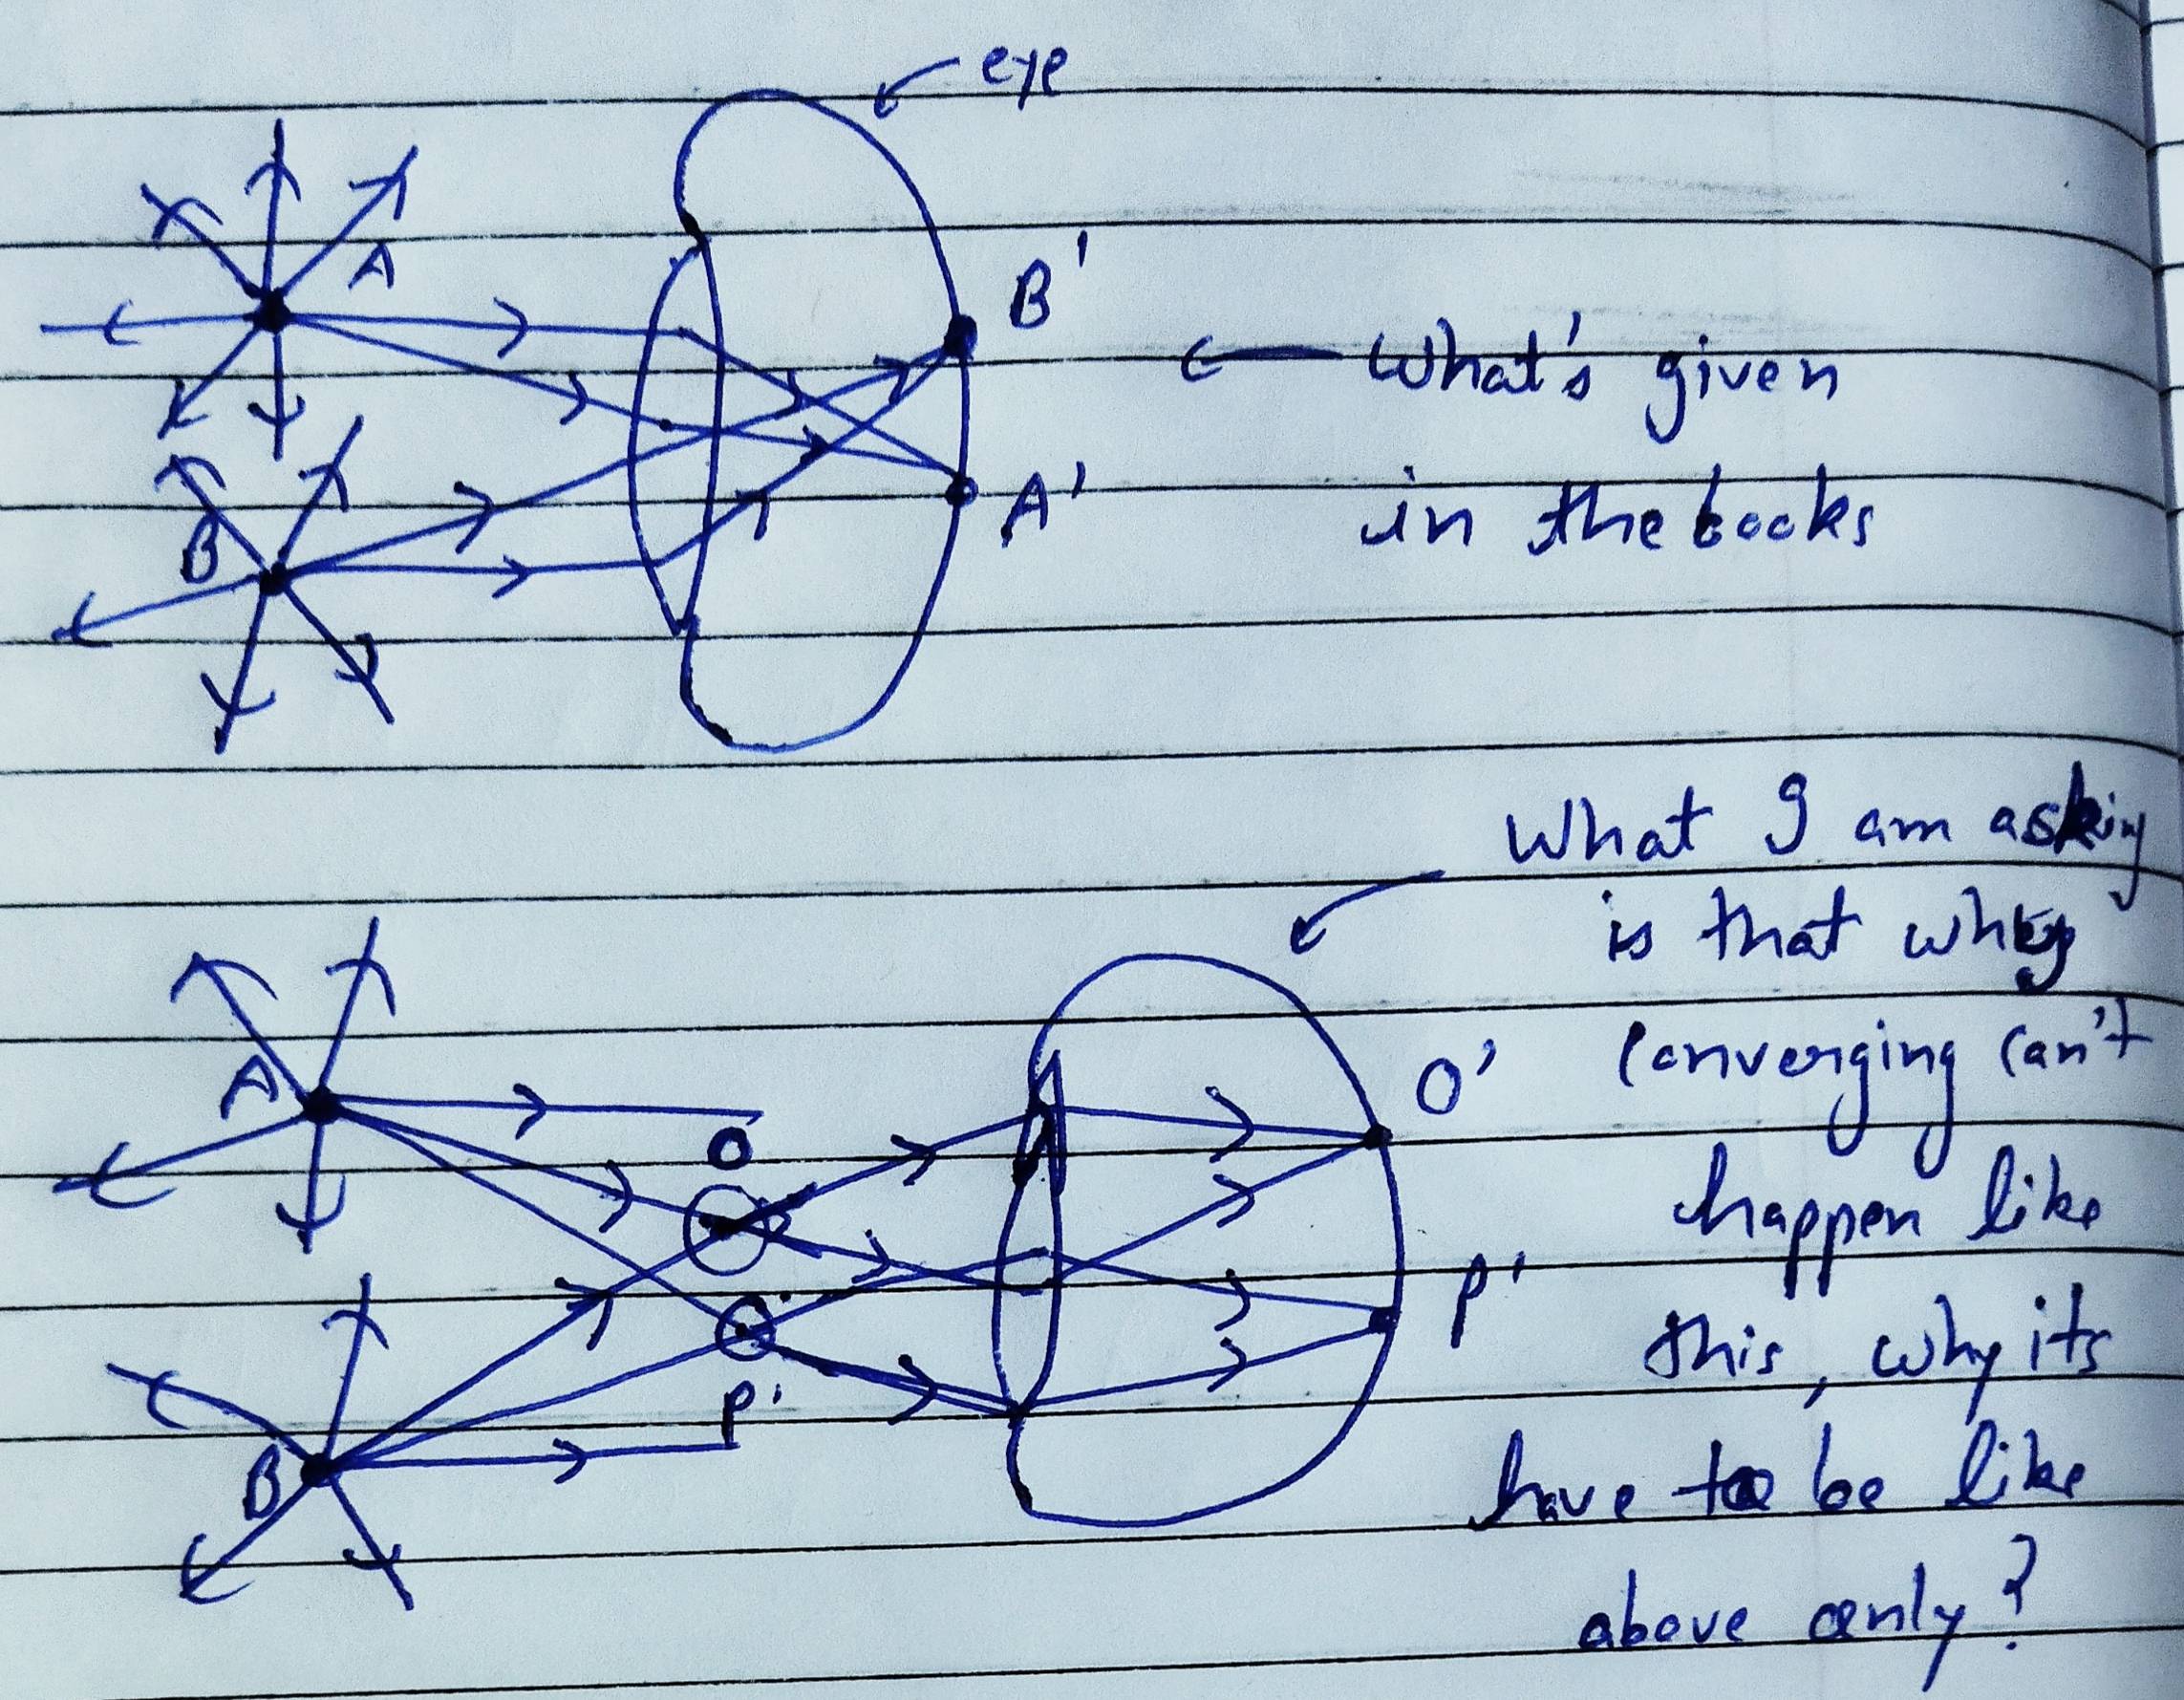 eye
A
B'
B
A'
← What's given
in the books
What I am asking
is that why
converging can't
happen like
this, why its
have to be like
above only?
A
O
O'
B
P'
P'